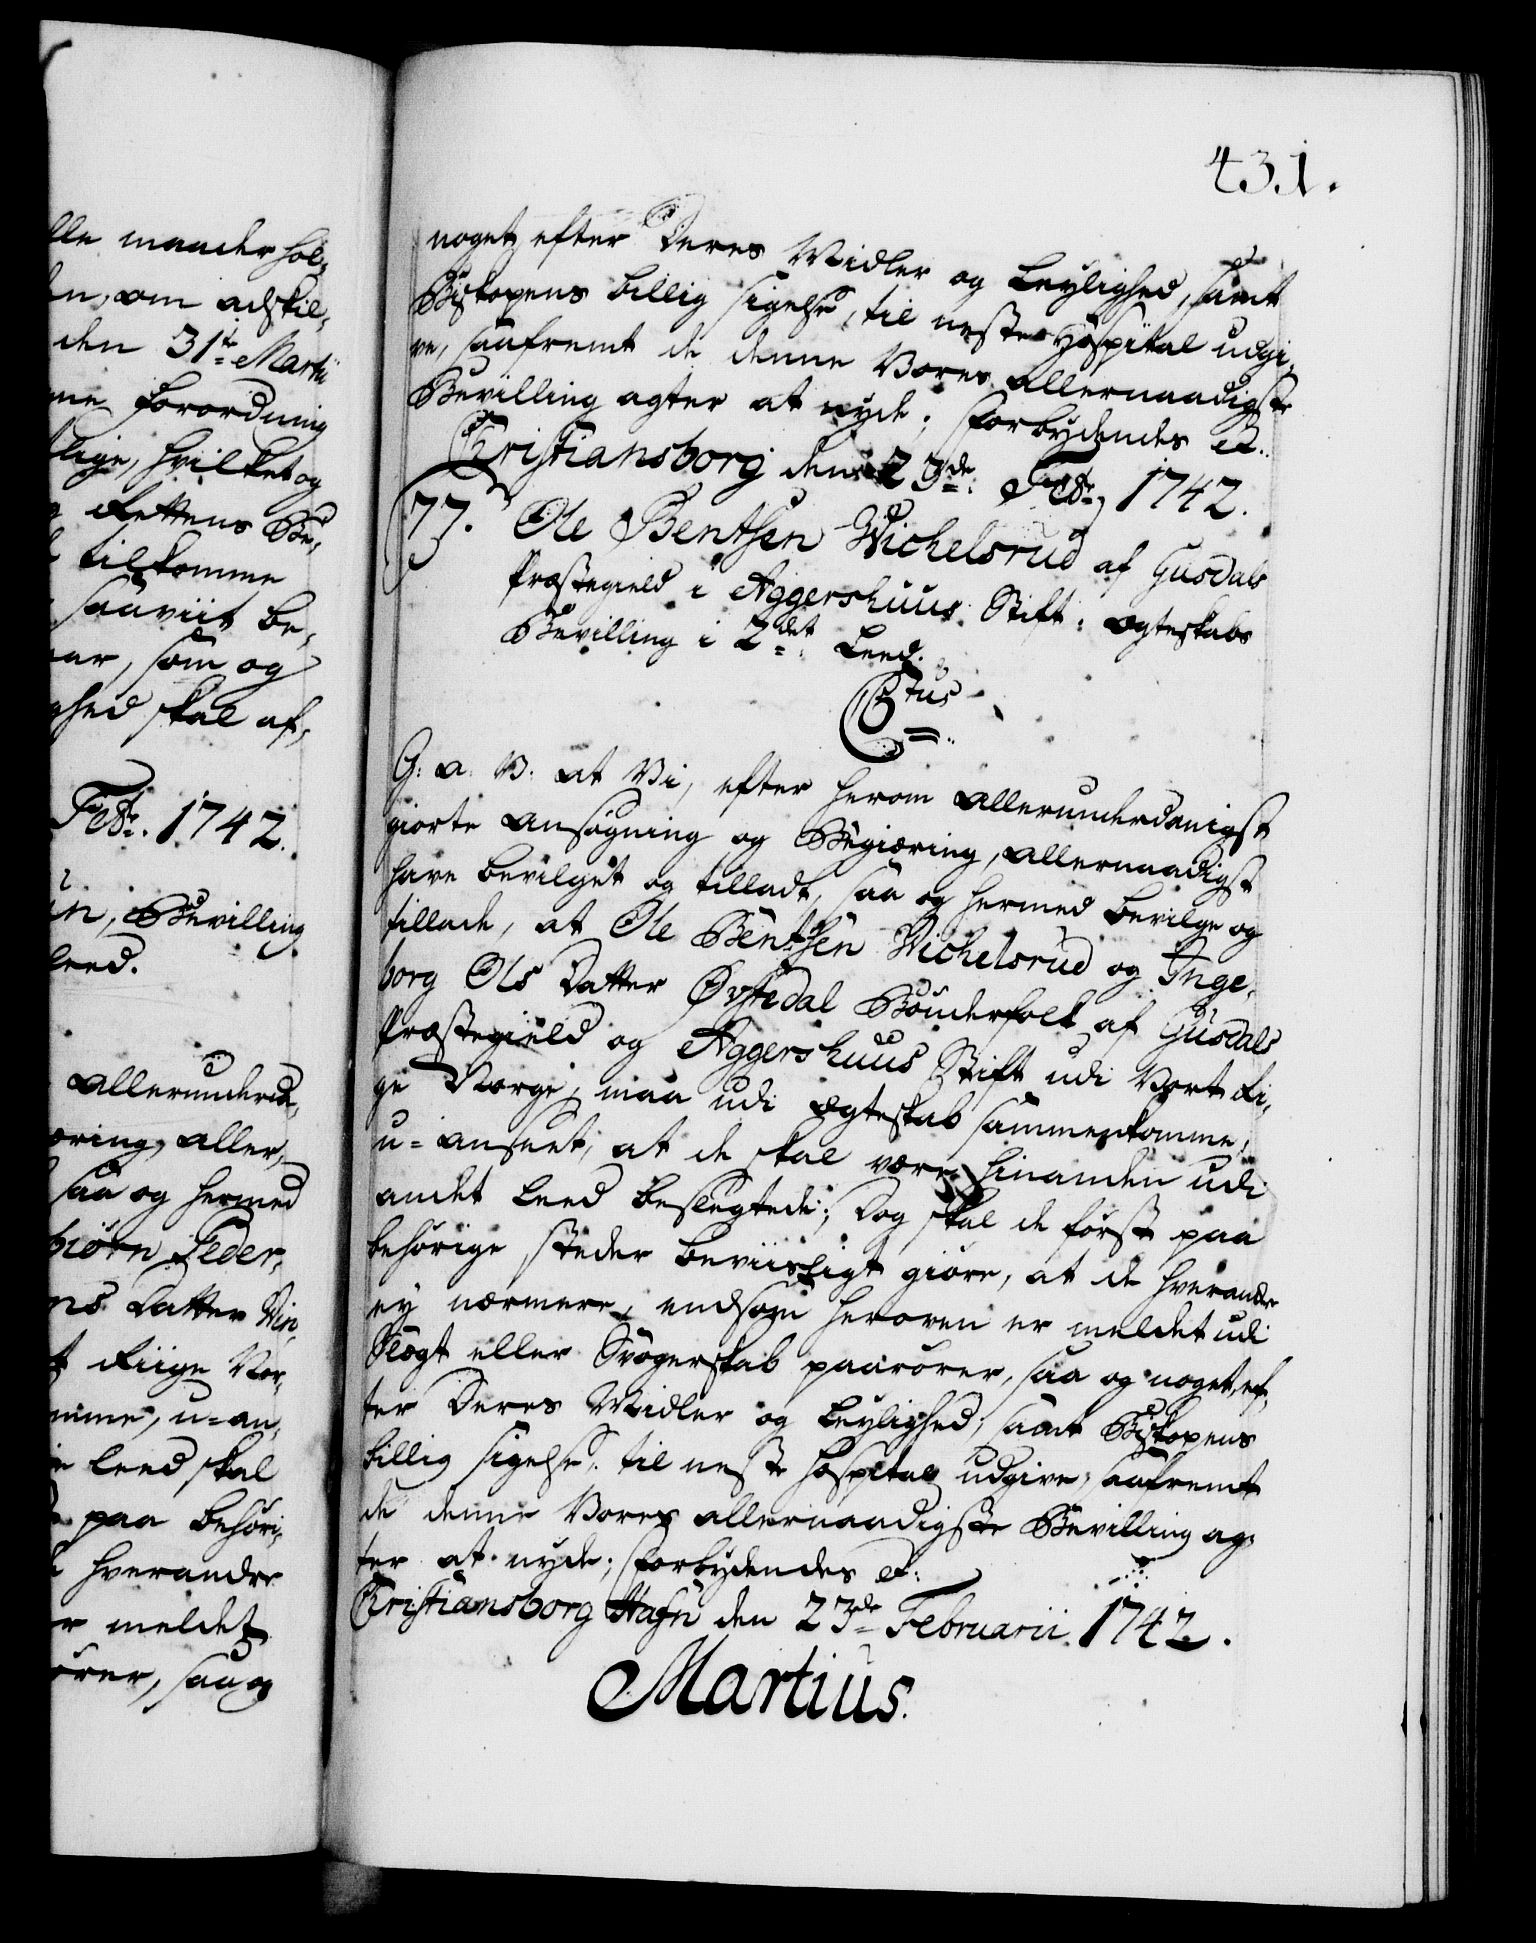 lle maader hol-
en, om adskil-
den 31te Martii
ne Forordning
lige, hvilket og
Rettens Be-
tilkomme
saaviit be-
ar, som og
ghed skal af-
Febr. 1742.
n, Bevilling
Leed.
allerunderd-
æring, aller-
saa og hermed
biørn Feder-
ns Datter Vin-
t Riige Nor-
mme, u-an-
e Leed skal
paa behøri-
hverandre
r meldet
ører, saa og
431.
noget efter Deres Midler og Leylighed, samt
Biskopens billig sigelse, til neste Hospital udgi-
ve, saafremt de denne Vores allernaadigste
Bevilling agter at nyde; Forbydendes &.
Christiansborg den 23de Febr. 1742.
77. Ole Bentsen Wichelsrud af Gusdals
Præstegield i Aggershuus Stift: Ægteskabs
Bevilling i 2det Leed.
C6tus
G: a: V: at Vi, efter herom allerunderdanigst
giorte Ansøgning og Begiæring, allernaadigst
have bevilget og tilladt, saa og hermed bevilge og
tillade, at Ole Bentsen Wichelsrud og Inge-
borg Ols Datter Øvstedal Bønderfolk af Gusdals
Præstegield og Aggershuus Stift udi Vort Ri-
ge Norge, maa udi Ægteskab sammenkomme,
u-anseet, at de skal være hinanden udi
andet Leed beslegtede; Dog skal de først paa
behørige steder beviisligt giøre, at de hverandre
ey nærmere, end som heroven er meldet udi
Slægt eller Svogerskab paarører, saa og noget, ef-
ter Deres Midler og Leylighed, samt Biskopens
billig sigelse, til neste Hospital udgive, saafremt
de denne Vores allernaadigste Bevilling ag-
ter at nyde; Forbydendes &:
Christiansborg Hafn den 23de Februarii 1742.
Martius.